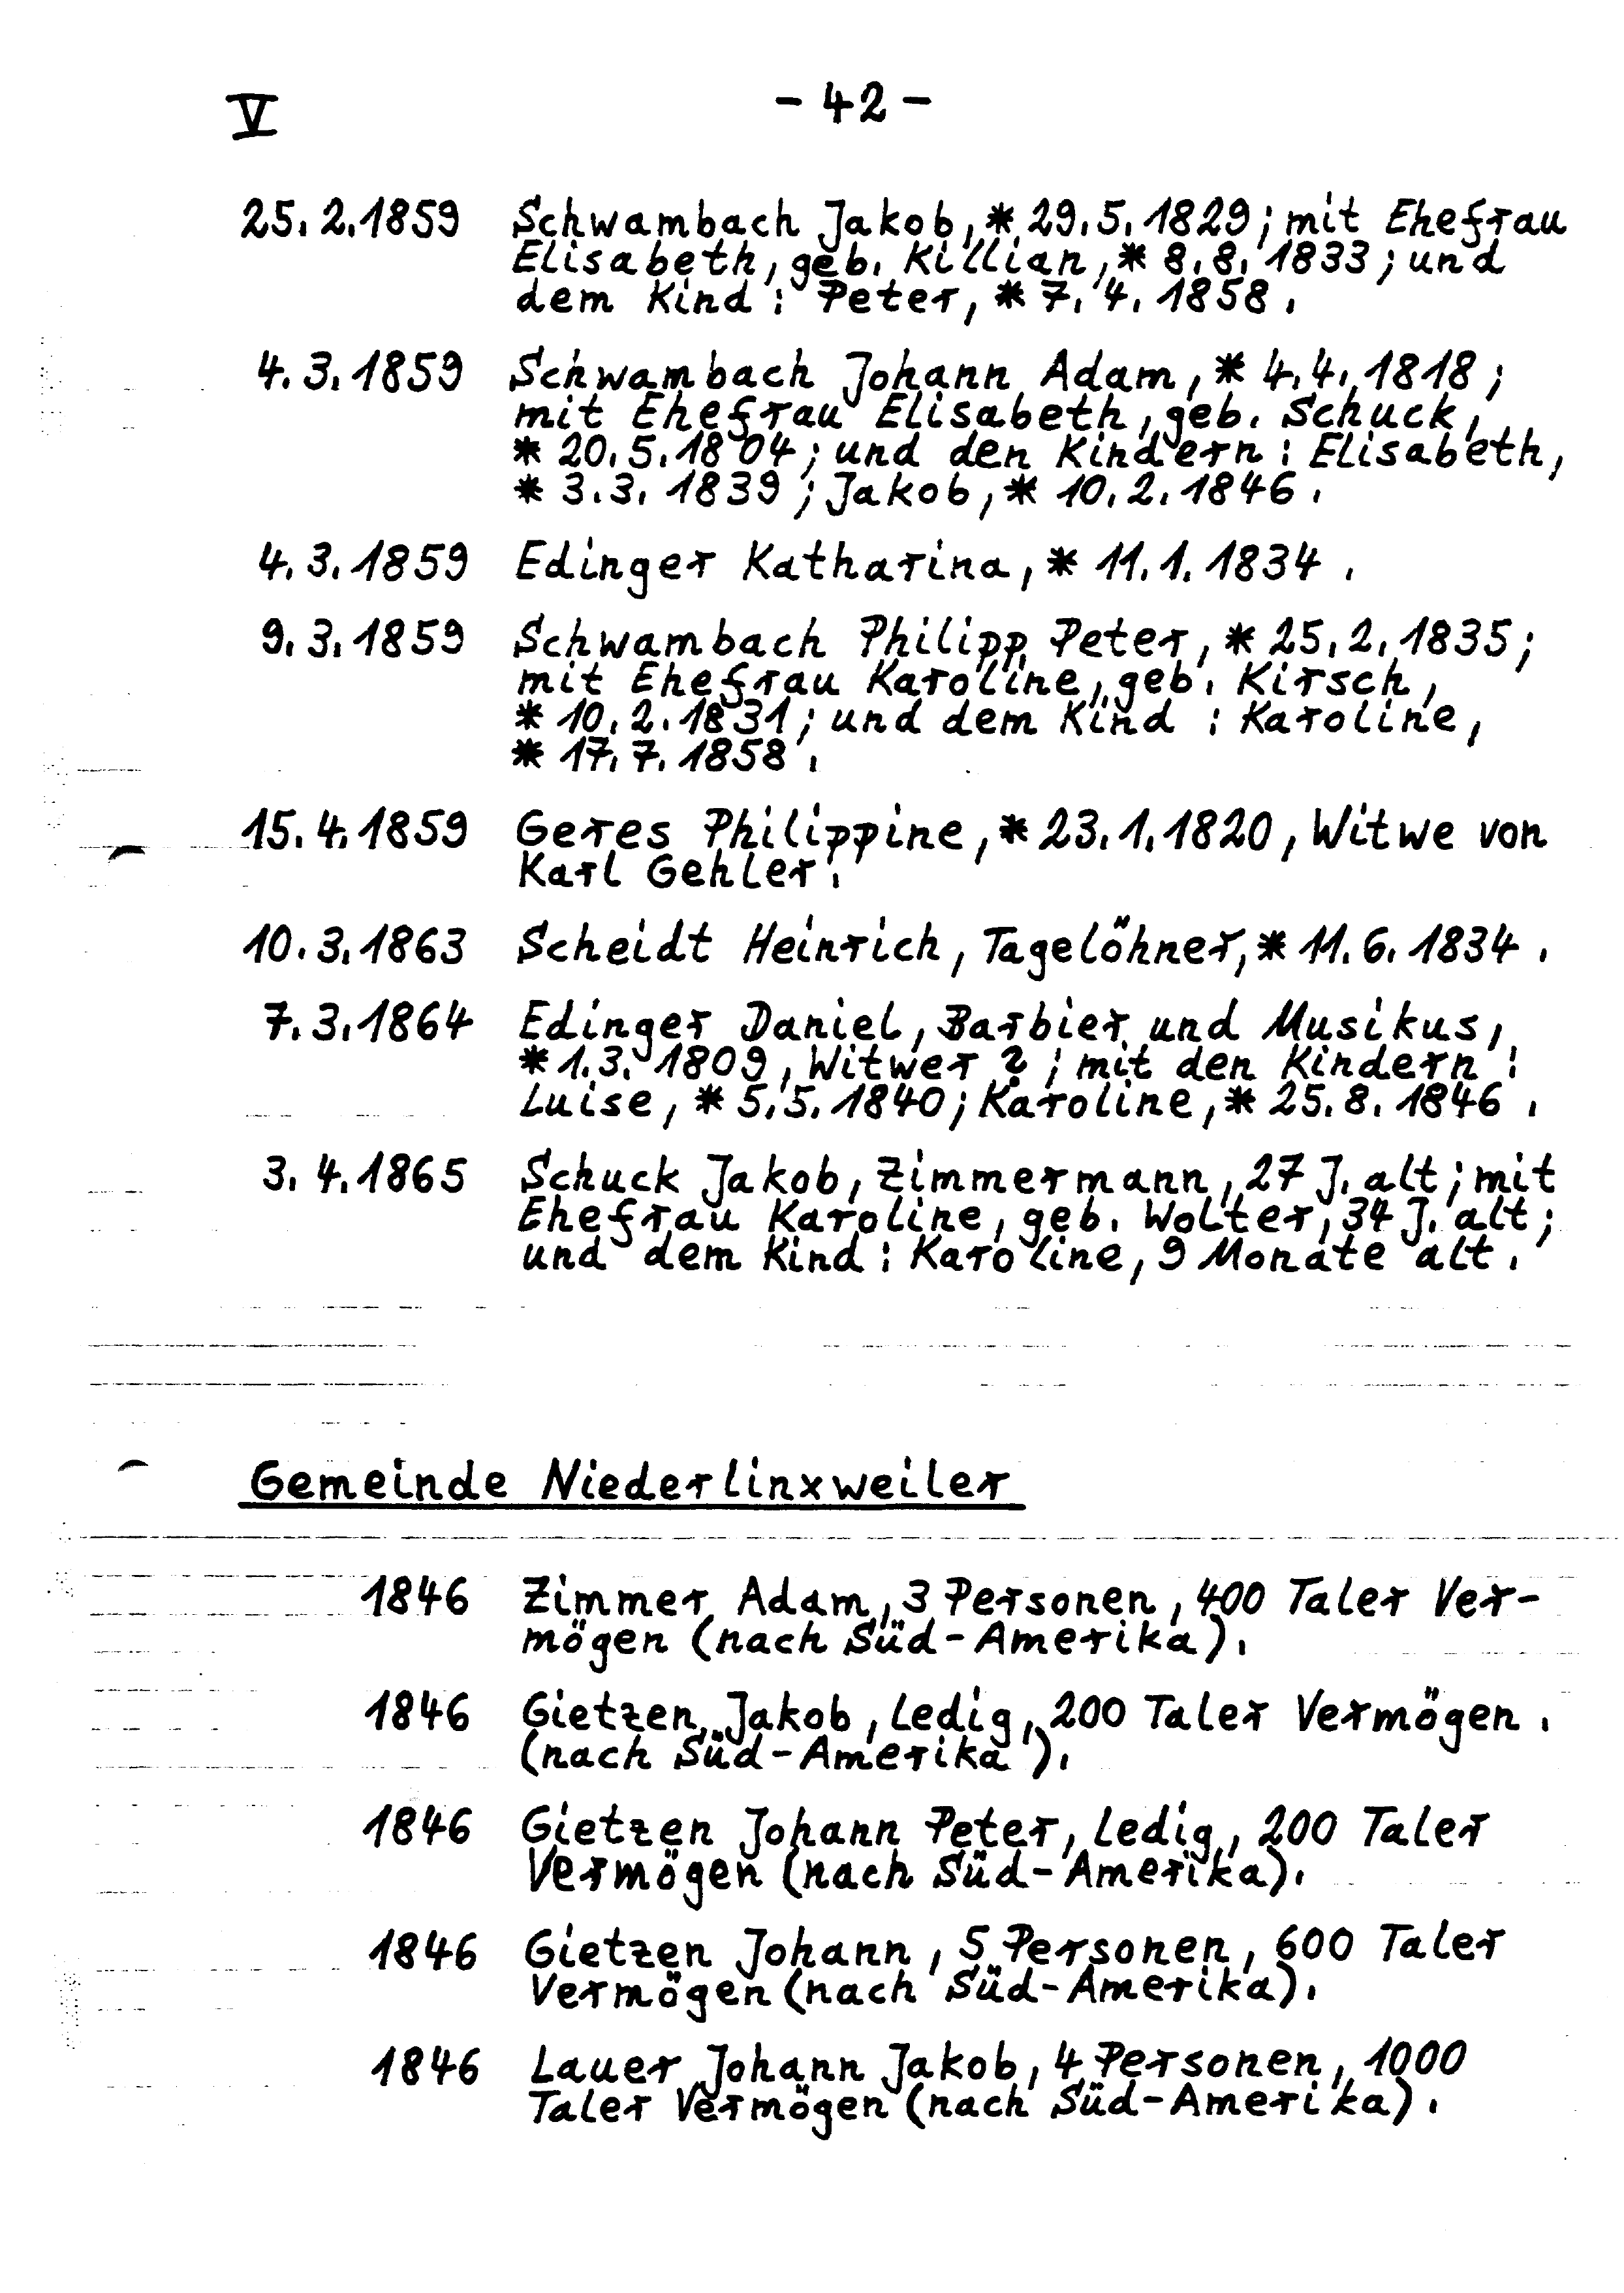 V
- 42 -
25.2.1859 Schwambach Jakob, * 29.5.1829; mit Ehefrau
Elisabeth, geb. Killian, * 8.8.1833; und
dem Kind: Peter, * 7.4.1858.
4.3.1859 Schwambach Johann Adam, * 4.4.1818;
mit Ehefrau Elisabeth, geb. Schuck,
* 20.5.1804; und den Kindern: Elisabeth,
* 3.3.1839; Jakob, * 10.2.1846.
4.3.1859 Edinger Katharina, * 11.1.1834.
9.3.1859 Schwambach Philipp Peter, * 25.2.1835;
mit Ehefrau Karoline, geb. Kirsch,
* 10.2.1831; und dem Kind: Karoline,
* 17.7.1858.
15.4.1859 Geres Philippine, * 23.1.1820, Witwe von
Karl Gehler.
10.3.1863 Scheidt Heinrich, Tagelöhner, * 11.6.1834.
7.3.1864 Edinger Daniel, Barbier und Musikus,
* 1.3.1809, Witwer ?; mit den Kindern:
Luise, * 5.5.1840; Karoline, * 25.8.1846.
3.4.1865 Schuck Jakob, Zimmermann, 27 J. alt; mit
Ehefrau Karoline, geb. Wolter, 34 J. alt;
und dem Kind: Karoline, 9 Monate alt.
Gemeinde Niederlinxweiler
1846 Zimmer Adam, 3 Personen, 400 Taler Ver-
mögen (nach Süd-Amerika).
1846 Gietzen Jakob, ledig, 200 Taler Vermögen.
(nach Süd-Amerika).
1846 Gietzen Johann Peter, ledig, 200 Taler
Vermögen (nach Süd-Amerika).
1846 Gietzen Johann, 5 Personen, 600 Taler
Vermögen (nach Süd-Amerika).
1846 Lauer Johann Jakob, 4 Personen, 1000
Taler Vermögen (nach Süd-Amerika).